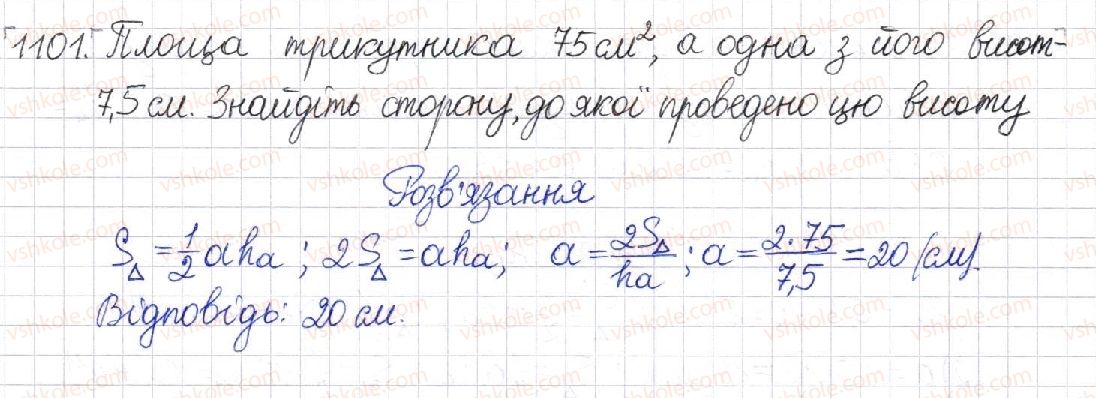 1101. Площа трикутника 75 см², а одна з його висот -
7,5 см. Знайдіть сторону, до якої проведено цю висоту
Розв'язання
S△ = 1/2 aha ; 2S△ = aha ; a = 2S△/ha ; a = 2·75/7,5 = 20 (см).
Відповідь: 20 см.